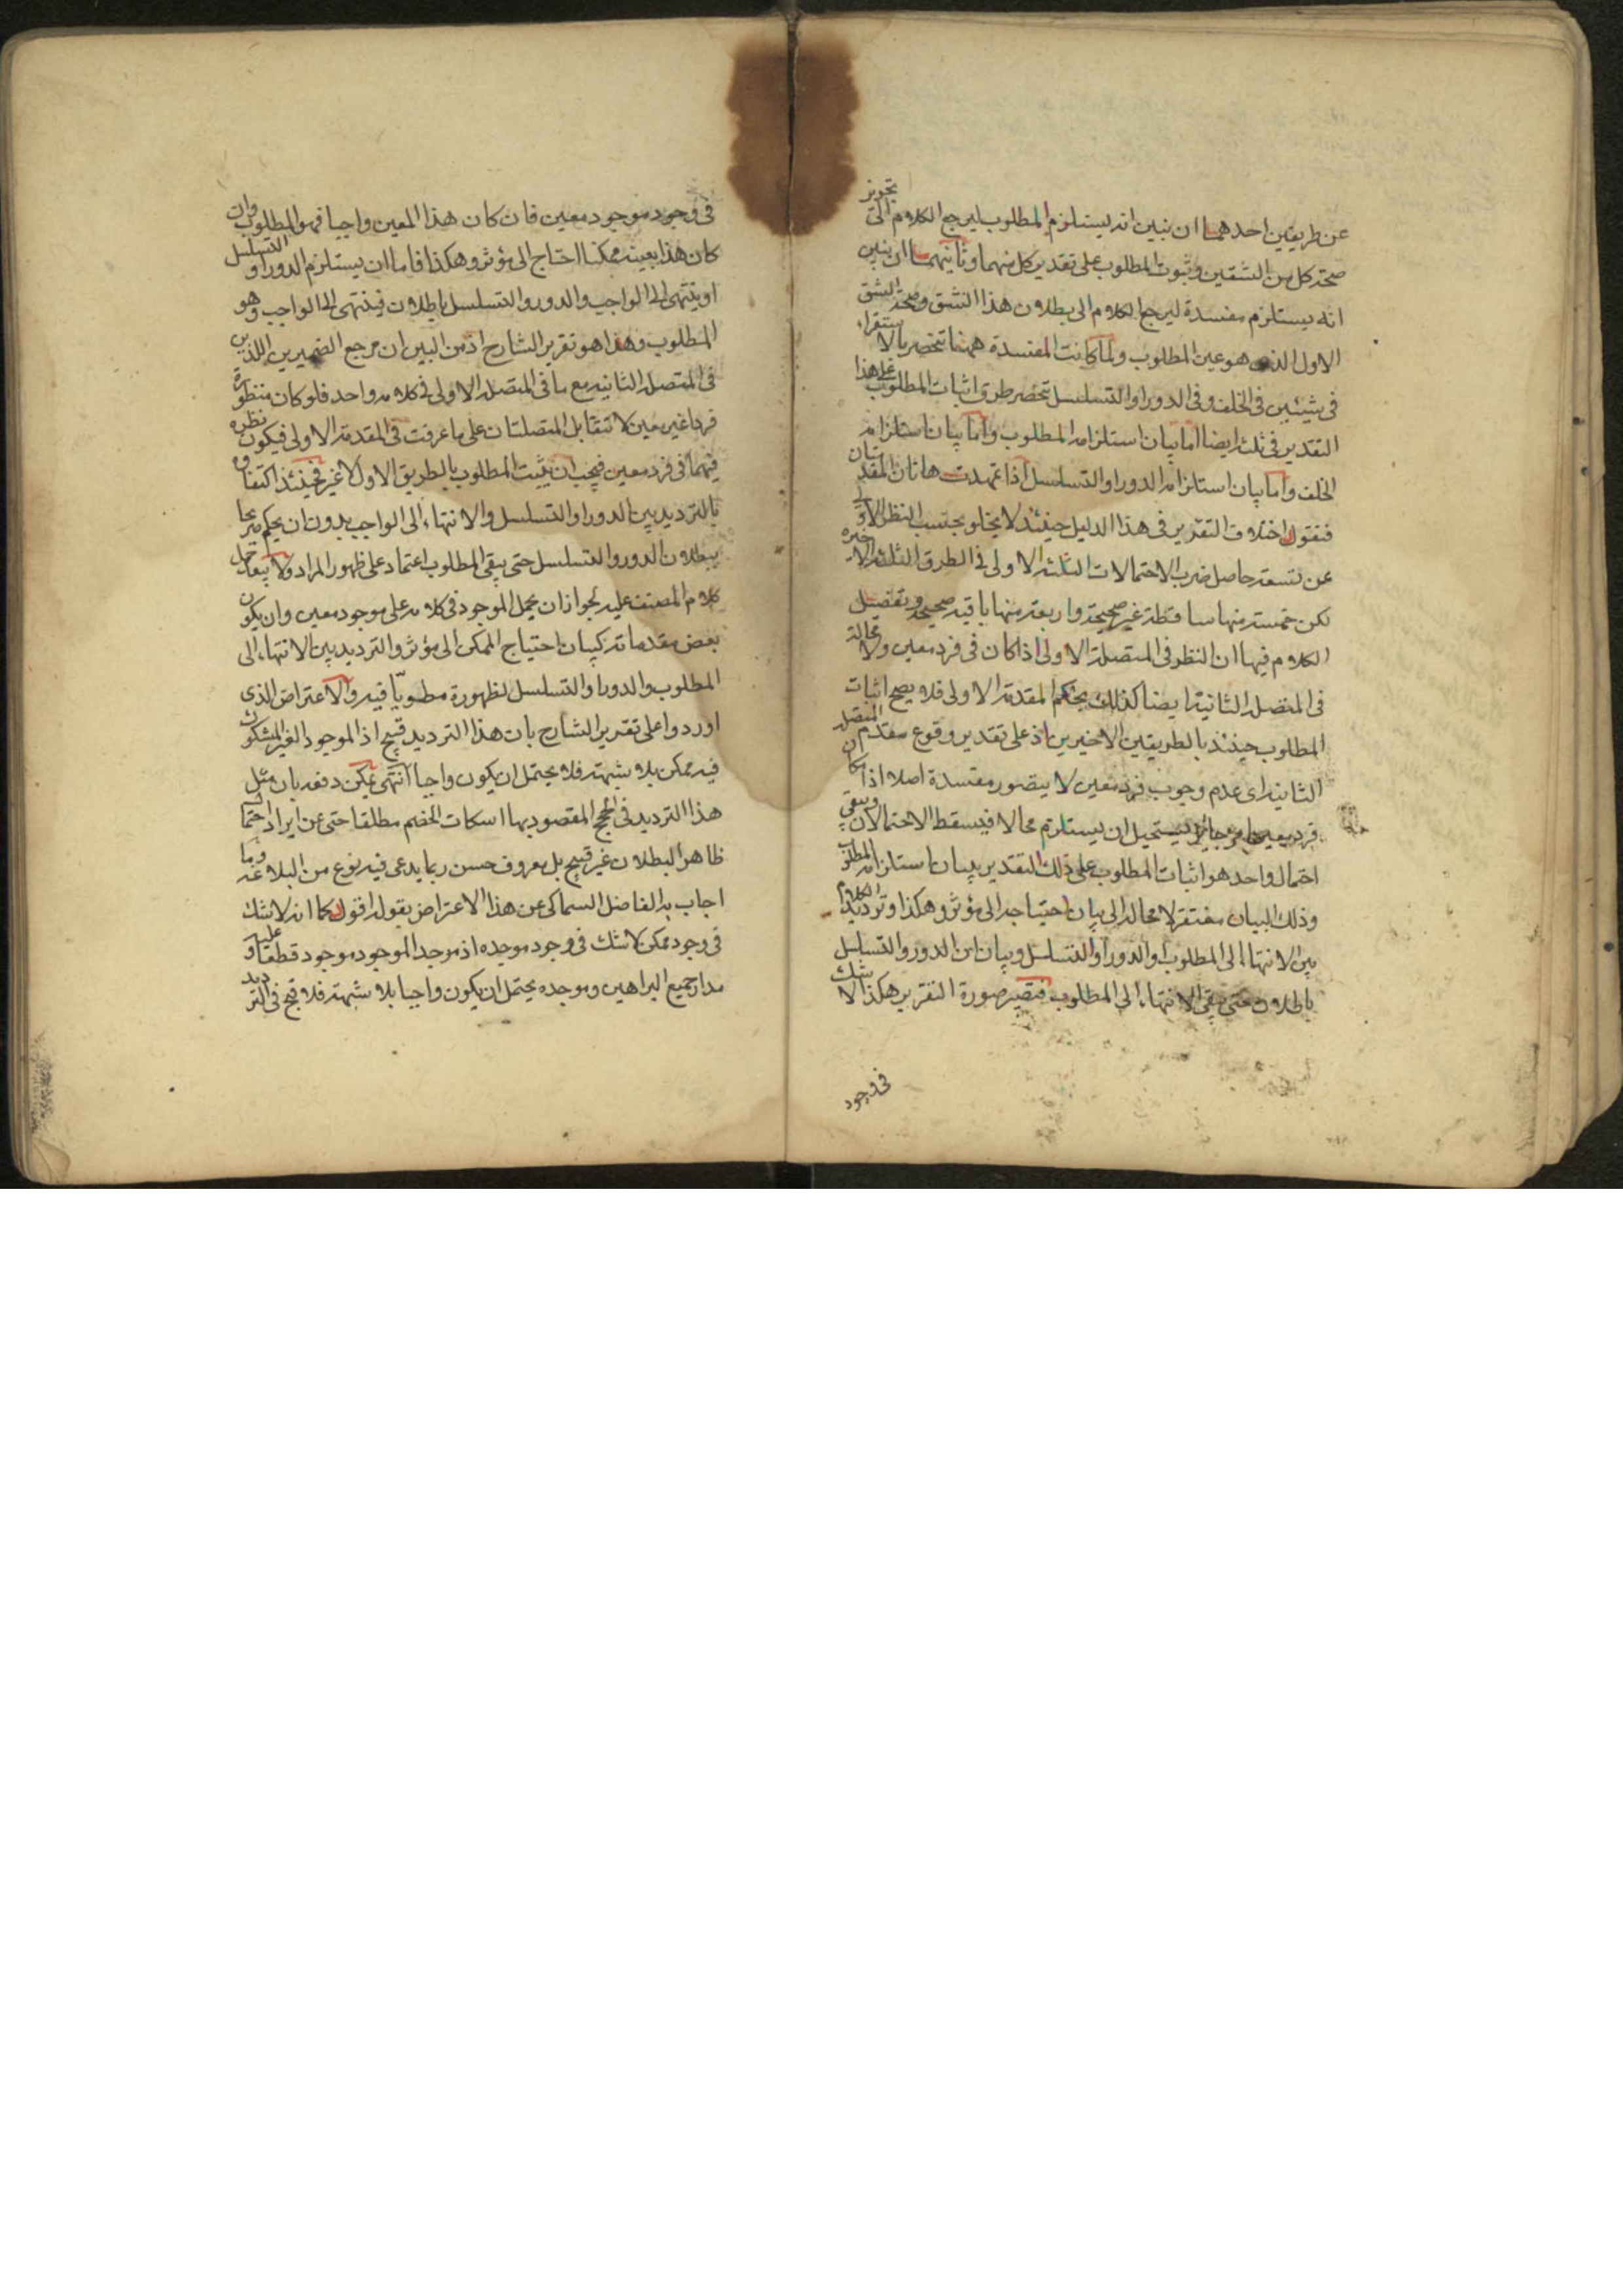 عن طريقين احدهما ان نبين انه يستلزم المطلوب ليرجع الكلام الى تجويز
صحة كل من الشقين وثبوت المطلوب على تقدير كل منهما وثانيهما ان نبين
انه يستلزم مفسدة ليرجع الكلام الى بطلان هذا الشق وصحة الشق
الاول الذى هو عين المطلوب ولما كانت المفسدة ههنا تنحصر بالاستقراء
فى شيئين فى الخلف وفى الدور او التسلسل تنحصر طرق اثبات المطلوب على هذا
التقدير فى ثلث ايضا اما بيان استلزامه المطلوب واما بيان استلزامه
الخلف واما بيان استلزامه الدور او التسلسل اذا تمهدت هاتان المقدمتان
فنقول اختلاف التقرير فى هذا الدليل حينئذ لا يخلو بحسب النظر الاولى
عن تسعة حاصل ضرب الاحتمالات الثلثة الاولى فى الطرق الثلثة الاخيرة
لكن خمسة منها ساقطة غير صحيحة واربعة منها باقية صحيحة وتفصيل
الكلام فيها ان النظر فى المتصلة الاولى اذا كان فى فرد معين ولا محالة
فى المتصلة الثانية ايضا كذلك بحكم المقدمة الاولى فلا يصح اثبات
المطلوب حينئذ بالطريقين الاخيرين اذ على تقدير وقوع مقدم المتصلة
الثانية اى عدم وجوب فرد معين لا يتصور مفسدة اصلا اذ امكان
فرد معين امر جائز يستحيل ان يستلزم محالا فيسقط الاحتمالان ويبقى
احتمال واحد هو اثبات المطلوب على ذلك التقدير ببيان استلزامه المطلوب
وذلك البيان مفتقر لا محالة الى بيان احتياجه الى مؤثر وهكذا وترديد الكلام
بين الانتهاء الى المطلوب او الدور او التسلسل وبيان ان الدور والتسلسل
باطلان حتى يبقى الانتهاء الى المطلوب فتصير صورة التقرير هكذا لا شك
فى وجود
فى وجود موجود معين فان كان هذا المعين واجبا فهو المطلوب وان
كان هذا بعينه ممكنا احتاج الى مؤثر وهكذا فاما ان يستلزم الدور او التسلسل
او ينتهى الى الواجب والدور والتسلسل باطلان فينتهى الى الواجب وهو
المطلوب وهذا هو تقرير الشارح اذ من البين ان مرجع الضميرين اللذين
فى المتصلة الثانية مع ما فى المتصلة الاولى فى كلامه واحد فلو كان منظورة
فردا غير معين لا تتقابل المتصلتان على ما عرفت فى المقدمة الاولى فيكون نظره
فيهما فى فرد معين فيجب ان يثبت المطلوب بالطريق الاول لا غير فحينئذ اكتفاؤه
بالترديد بين الدور او التسلسل والانتهاء الى الواجب بدون ان يحكم صريحا
ببطلان الدور والتسلسل حتى يبقى المطلوب اعتماد على ظهور المراد ولا يبعد حمل
كلام المصنف عليه لجواز ان يحمل الموجود فى كلامه على موجود معين وان يكون
بعض مقدماته كبيان احتياج الممكن الى مؤثر والترديد بين الانتهاء الى
المطلوب والدور او التسلسل لظهوره مطويا فيه والاعتراض الذى
اوردوا على تقرير الشارح بان هذا الترديد قبيح اذ الموجود الغير المشكوك
فيه ممكن بلا شبهة فلا يحتمل ان يكون واجبا انتهى يمكن دفعه بان مثل
هذا الترديد فى الحجج المقصود بها اسكات الخصم مطلقا حتى عن ايراد احتمال
ظاهر البطلان غير قبيح بل معروف حسن ربما يدعى فيه نوع من البلاغة وما
اجاب به الفاضل السماكى عن هذا الاعتراض بقوله اقول كما انه لا شك
فى وجود ممكن لا شك فى وجود موجده اذ موجد الموجود موجود قطعا وعليه
مدار جميع البراهين وموجده يحتمل ان يكون واجبا بلا شبهة فلا قبح فى الترديد